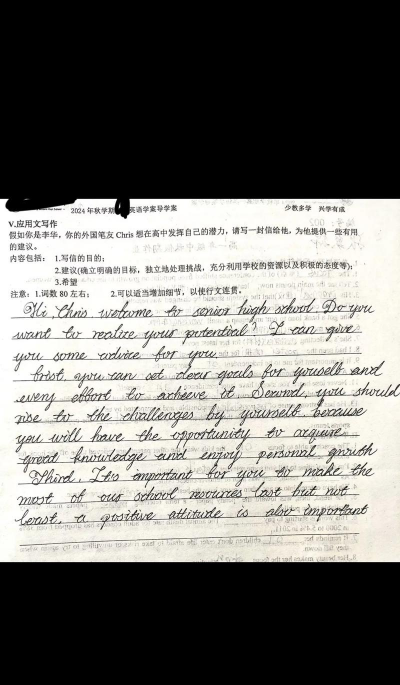 2024 年秋学期 英语学案导学案 少教多学 兴学有成
V.应用文写作
假如你是李华，你的外国笔友 Chris 想在高中发挥自己的潜力，请写一封信给他，为他提供一些有用
的建议。
内容包括：1.写信的目的；
2.建议(确立明确的目标，独立地处理挑战，充分利用学校的资源以及积极的态度等)；
3.希望
注意：1.词数 80 左右； 2.可以适当增加细节，以使行文连贯。
Hi, Chris welcome to senior high school Do you
want to realize your potential? I can give
you some advice for you.
frist, you can set clear goals for youself and
every effort to achieve it Second, you should
rise to the challenges by yourself because
you will have the opportunity to acquire
great knowledge and enjoy personal growth
Third, It's important for you to make the
most of our school resources last but not
least, a positive attitude is also important